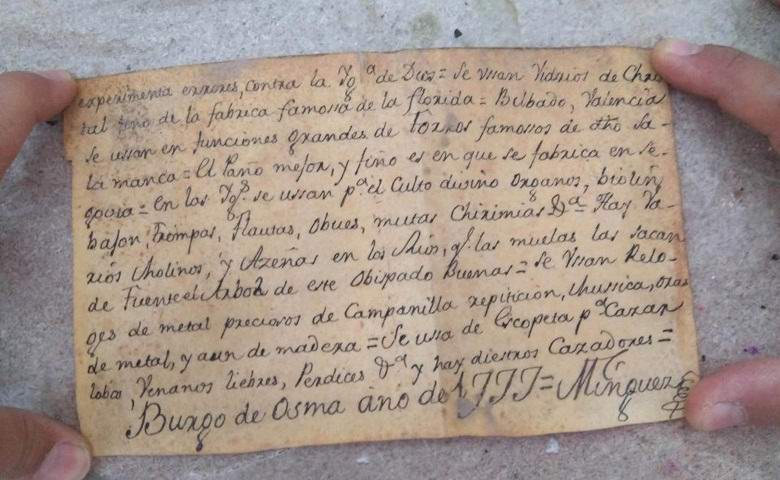 experimenta errores, contra la Yg.ª de Dios = Se vssan Vidrios de Chris
tal fino de la fabrica famossa de la florida = Bilbado, Valencia
Se ussan en funciones grandes de Toros famossos de dho Sa-
lamanca = El Paño mejor, y fino es en que se fabrica en Se-
govia = en las Yg.s se ussan p.ª el Culto divino Organos, biolin
bajon, trompas, flautas, obues, mutas Chirimias &.ª = Hay Va-
rios Molinos, y Azeñas en los Rios, q.e las muelas las sacan
de Fuente el Arbol de este Obispado Buenas = Se Vssan Relo-
ges de metal preciosos de Campanilla repiticion, Mussica, otras
de metal, y aun de madera = Se ussa de Escopeta p.ª Cazar
lobos, Venanos liebres, Perdices &.ª y hay diestros Cazadores =
Burgo de Osma año de 1777 = Minguez